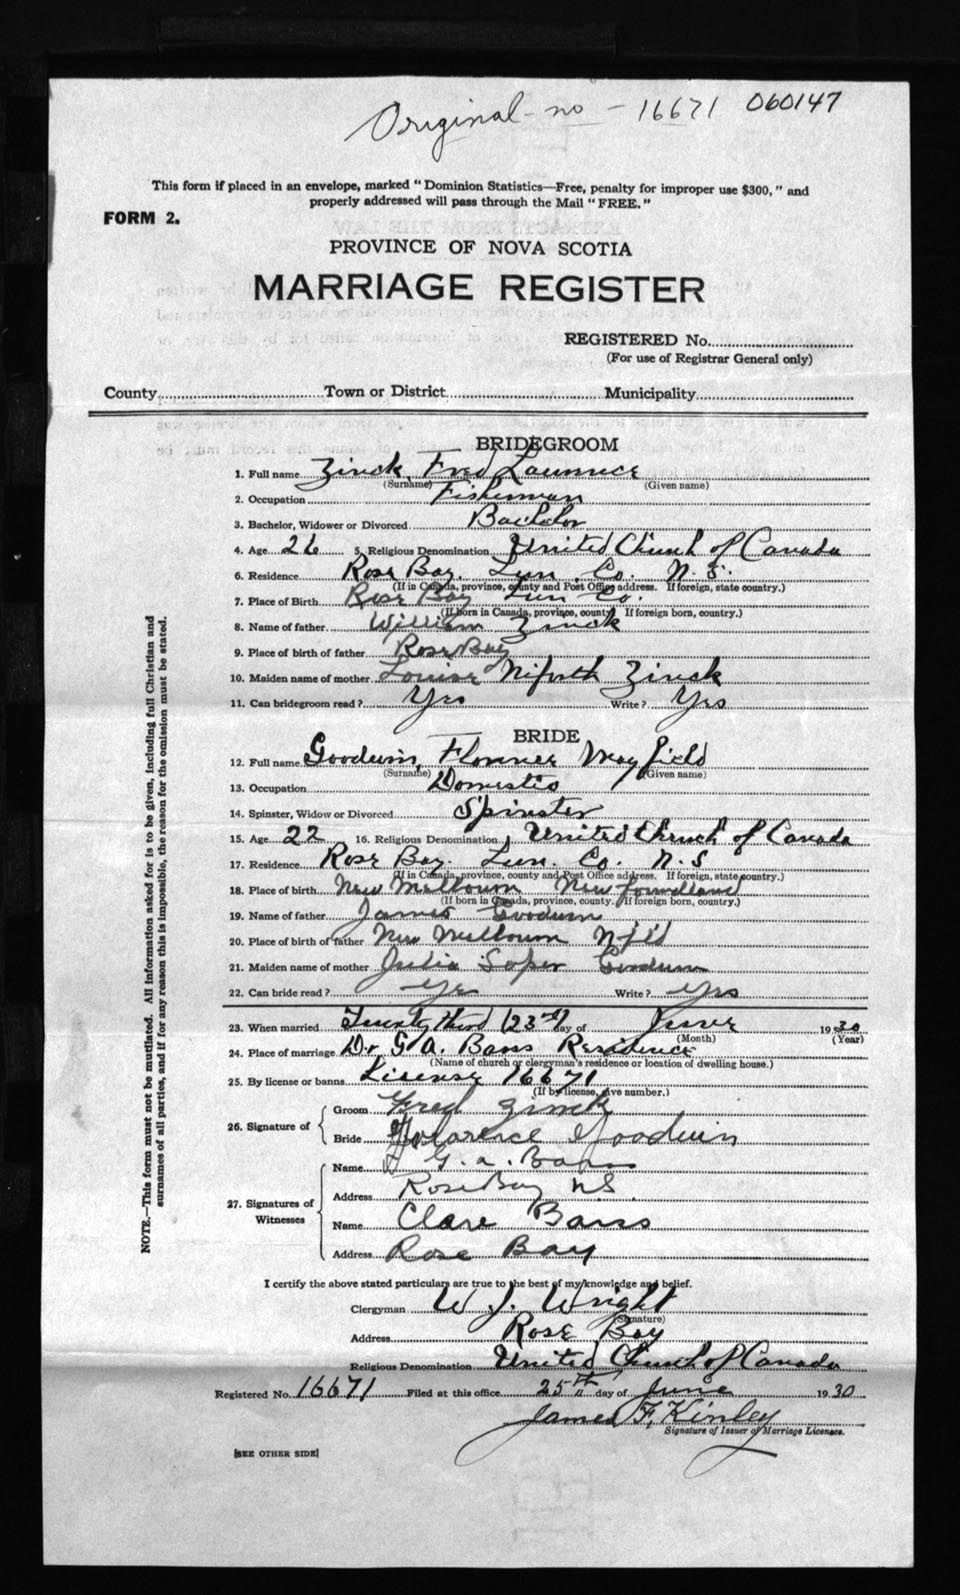 Original no - 16671 060147
This form if placed in an envelope, marked "Dominion Statistics—Free, penalty for improper use $300," and
properly addressed will pass through the Mail "FREE."
FORM 2.
PROVINCE OF NOVA SCOTIA
MARRIAGE REGISTER
REGISTERED No.
(For use of Registrar General only)
County Town or District Municipality
BRIDEGROOM
1. Full name Zinck, Fred Laurence
(Surname) (Given name)
2. Occupation Fisherman
3. Bachelor, Widower or Divorced Bachelor
4. Age 26 5. Religious Denomination United Church of Canada
6. Residence Rose Bay. Lun. Co. N. S.
(If in Canada, province, county and Post Office address. If foreign, state country.)
7. Place of Birth Rose Bay Lun. Co.
(If born in Canada, province, county. If foreign born, country.)
8. Name of father William Zinck
9. Place of birth of father Rose Bay
10. Maiden name of mother Louise Zinck
11. Can bridegroom read? Yes Write? Yes
BRIDE
12. Full name Goodwin, Florence Mayfield
(Surname) (Given name)
13. Occupation Domestic
14. Spinster, Widow or Divorced Spinster
15. Age 22 16. Religious Denomination United Church of Canada
17. Residence Rose Bay. Lun. Co. N. S
(If in Canada, province, county and Post Office address. If foreign, state country.)
18. Place of birth New Melbourn New foundland
(If born in Canada, province, county. If foreign born, country.)
19. Name of father James Goodwin
20. Place of birth of father New Melbourn Nfld
21. Maiden name of mother Julia Soper Goodwin
22. Can bride read? Yes Write? Yes
23. When married Twenty third (23rd) day of June 1930
(Month) (Year)
24. Place of marriage Dr G A. Barss Residence
(Name of church or clergyman's residence or location of dwelling house.)
25. By license or banns License 16671
(If by license, give number.)
26. Signature of Groom Fred Zinck
Bride Florence Goodwin
27. Signatures of Witnesses
Name G. A. Barss
Address Rose Bay NS.
Name Clare Barss
Address Rose Bay
I certify the above stated particulars are true to the best of my knowledge and belief.
Clergyman W. J. Wright
(Signature)
Address Rose Bay
Religious Denomination United Church of Canada
Registered No. 16671 Filed at this office 25th day of June 1930
James F. Kinley
Signature of Issuer of Marriage Licenses.
[SEE OTHER SIDE]
NOTE.—This form must not be mutilated. All information asked for is to be given, including full Christian and
surnames of all parties, and if for any reason this is impossible, the reason for the omission must be stated.